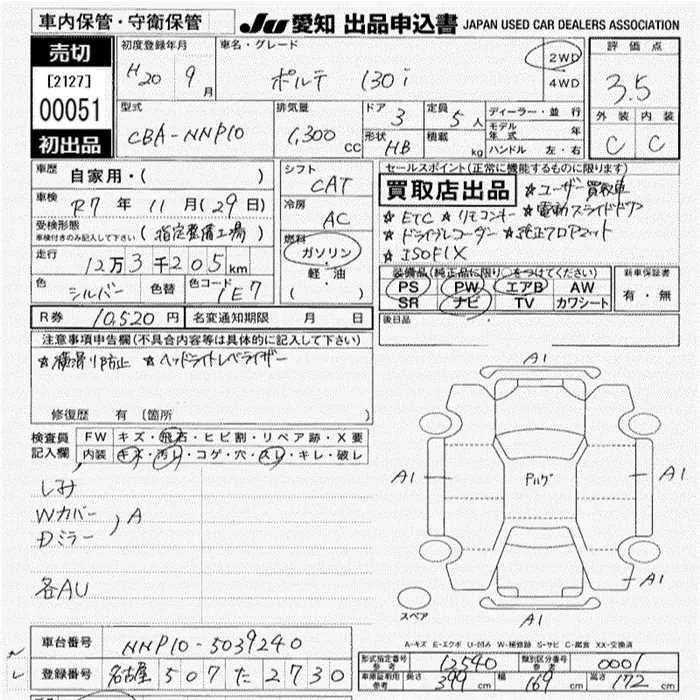 車内保管・守衛保管
JU 愛知 出品申込書 JAPAN USED CAR DEALERS ASSOCIATION
売切
[2127]
00051
初出品
初度登録年月 H20 9月
車名・グレード ポルテ 130i
2WD
4WD
評価点 3.5
外装 内装
C C
型式 CBA-NNP10
排気量 1,300cc
ドア 3
定員 5人
形状 HB
積載 kg
ディーラー・並行
モデル年式 年
ハンドル 左・右
車歴 自家用・( )
車検 R7年11月(29日)
受検形態 (指定整備工場)
車検付きのみ記入して下さい
走行 12万3千205km
色 シルバー 色替 色コード 1E7
シフト CAT
冷房 AC
燃料 ガソリン
軽・油
( )
セールスポイント(正常に機能するものに限ります)
買取店出品 ☆ユーザー買取車
☆ETC ☆リモコンキー ☆電動スライドドア
☆ドライブレコーダー ☆純正フロアマット
☆ISOFIX
装備品(純正品に限り○をつけてください)
PS PW エアB AW
SR ナビ TV カワシート
新車保証書
有・無
R券 10,520円 名変通知期限 月 日
後日品
注意事項申告欄(不具合内容等は具体的に記入して下さい)
☆横滑り防止 ☆ヘッドライトレベライザー
修復歴 有 (箇所
検査員記入欄
FW キズ・飛石・ヒビ割・リペア跡・X要
内装 キズ・汚レ・コゲ・穴・スレ・キレ・破レ
シミ
Wカバー
Dミラー
)A
各AU
A1
A1
A1
A1
A1
スペア
A-キズ E-エクボ U-凹み W-補修跡 S-サビ C-腐食 XX-交換済
車台番号 NNP10-5039240
登録番号 名古屋 507 た 2730
型式指定番号参考 12540
類別区分番号参考 0001
車庫証明用参考 長さ 399cm 幅 169cm 高さ 172cm